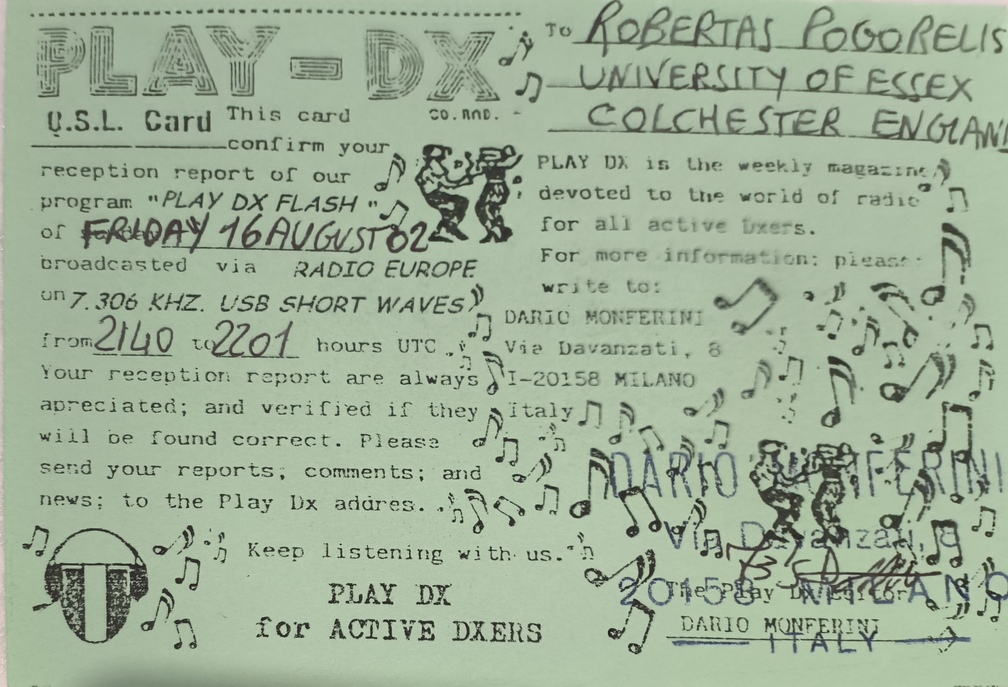 PLAY-DX
CO.RAD.
Q.S.L. Card This card
confirm your
reception report of our
program "PLAY DX FLASH"
of FRIDAY 16 AUGUST 02
broadcasted via RADIO EUROPE
on 7.306 KHZ. USB SHORT WAVES)
from 2140 to 2201 hours UTC.
Your reception report are always
apreciated; and verified if they
will be found correct. Please
send your reports; comments; and
news; to the Play Dx addres...
Keep listening with us."
PLAY DX
for ACTIVE DXERS
To ROBERTAS POGORELIS
UNIVERSITY OF ESSEX
COLCHESTER ENGLAN
PLAY DX is the weekly magazine
devoted to the world of radio
for all active Dxers.
For more information: please
write to:
DARIO MONFERINI
Via Davanzati, 8
I-20158 MILANO
Italy
DARIO MONFERINI
Via Davanzati, 8
20158 MILANO
The Play Dx Editor
DARIO MONFERINI
ITALY